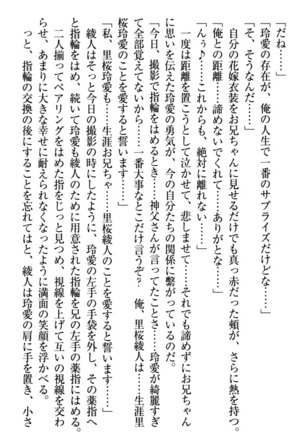 「だね……」
「そ、そうなんだ……」
「玲愛の存在が、俺の人生で一番のサプライズだけどな……」
自分の花嫁衣装をお兄ちゃんに見せるだけでも真っ赤だった頬が、さらに熱を持つ。
「俺との距離……諦めないでくれて……ありがとな……」
「んぅ♪……これからも、絶対に離れない……」
一度は距離を置こうとして泣かせて、悲しませて……それでも諦めずにお兄ちゃん
に思いを伝えた玲愛の勇気が、今の自分たちの関係に繋がっているのだ。
「今日、撮影で指輪をはめるとき……神父さんが言ってたことさ……玲愛が綺麗すぎ
て全部覚えてないから……一番大事なとこだけ言うぞ？　俺、里桜綾人は……生涯里
桜玲愛のことを愛すると誓います……」
「私、里桜玲愛も……生涯お兄ちゃ……里桜綾人のことを愛すると誓います……」
綾人はそっと今日の撮影の時にしたように、玲愛の左手の手袋を外し、その薬指へ
と指輪をはめ、続いて玲愛も綾人のために用意された指輪を兄の左手の薬指にはめる。
二人揃ってペアリングをはめた指をじっと見つめ、視線を上げて互いの視線を交わ
らせ、あまりに大きな幸せに耐えられなくなったように満面の笑顔を浮かべる。
っと、指輪の交換の後にすることを忘れてはと、綾人は玲愛の肩に手を置き、小さ